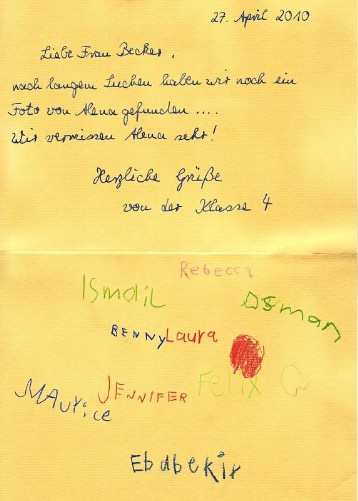 27. April 2010
Liebe Frau Becker,
nach langem Suchen haben wir noch ein
Foto von Alena gefunden ....
Wir vermissen Alena sehr!
Herzliche Grüße
von der Klasse 4
Rebecca
Ismail
Osman
BENNY Laura
Felix
MAurice
JENNIFER
Ebubekir